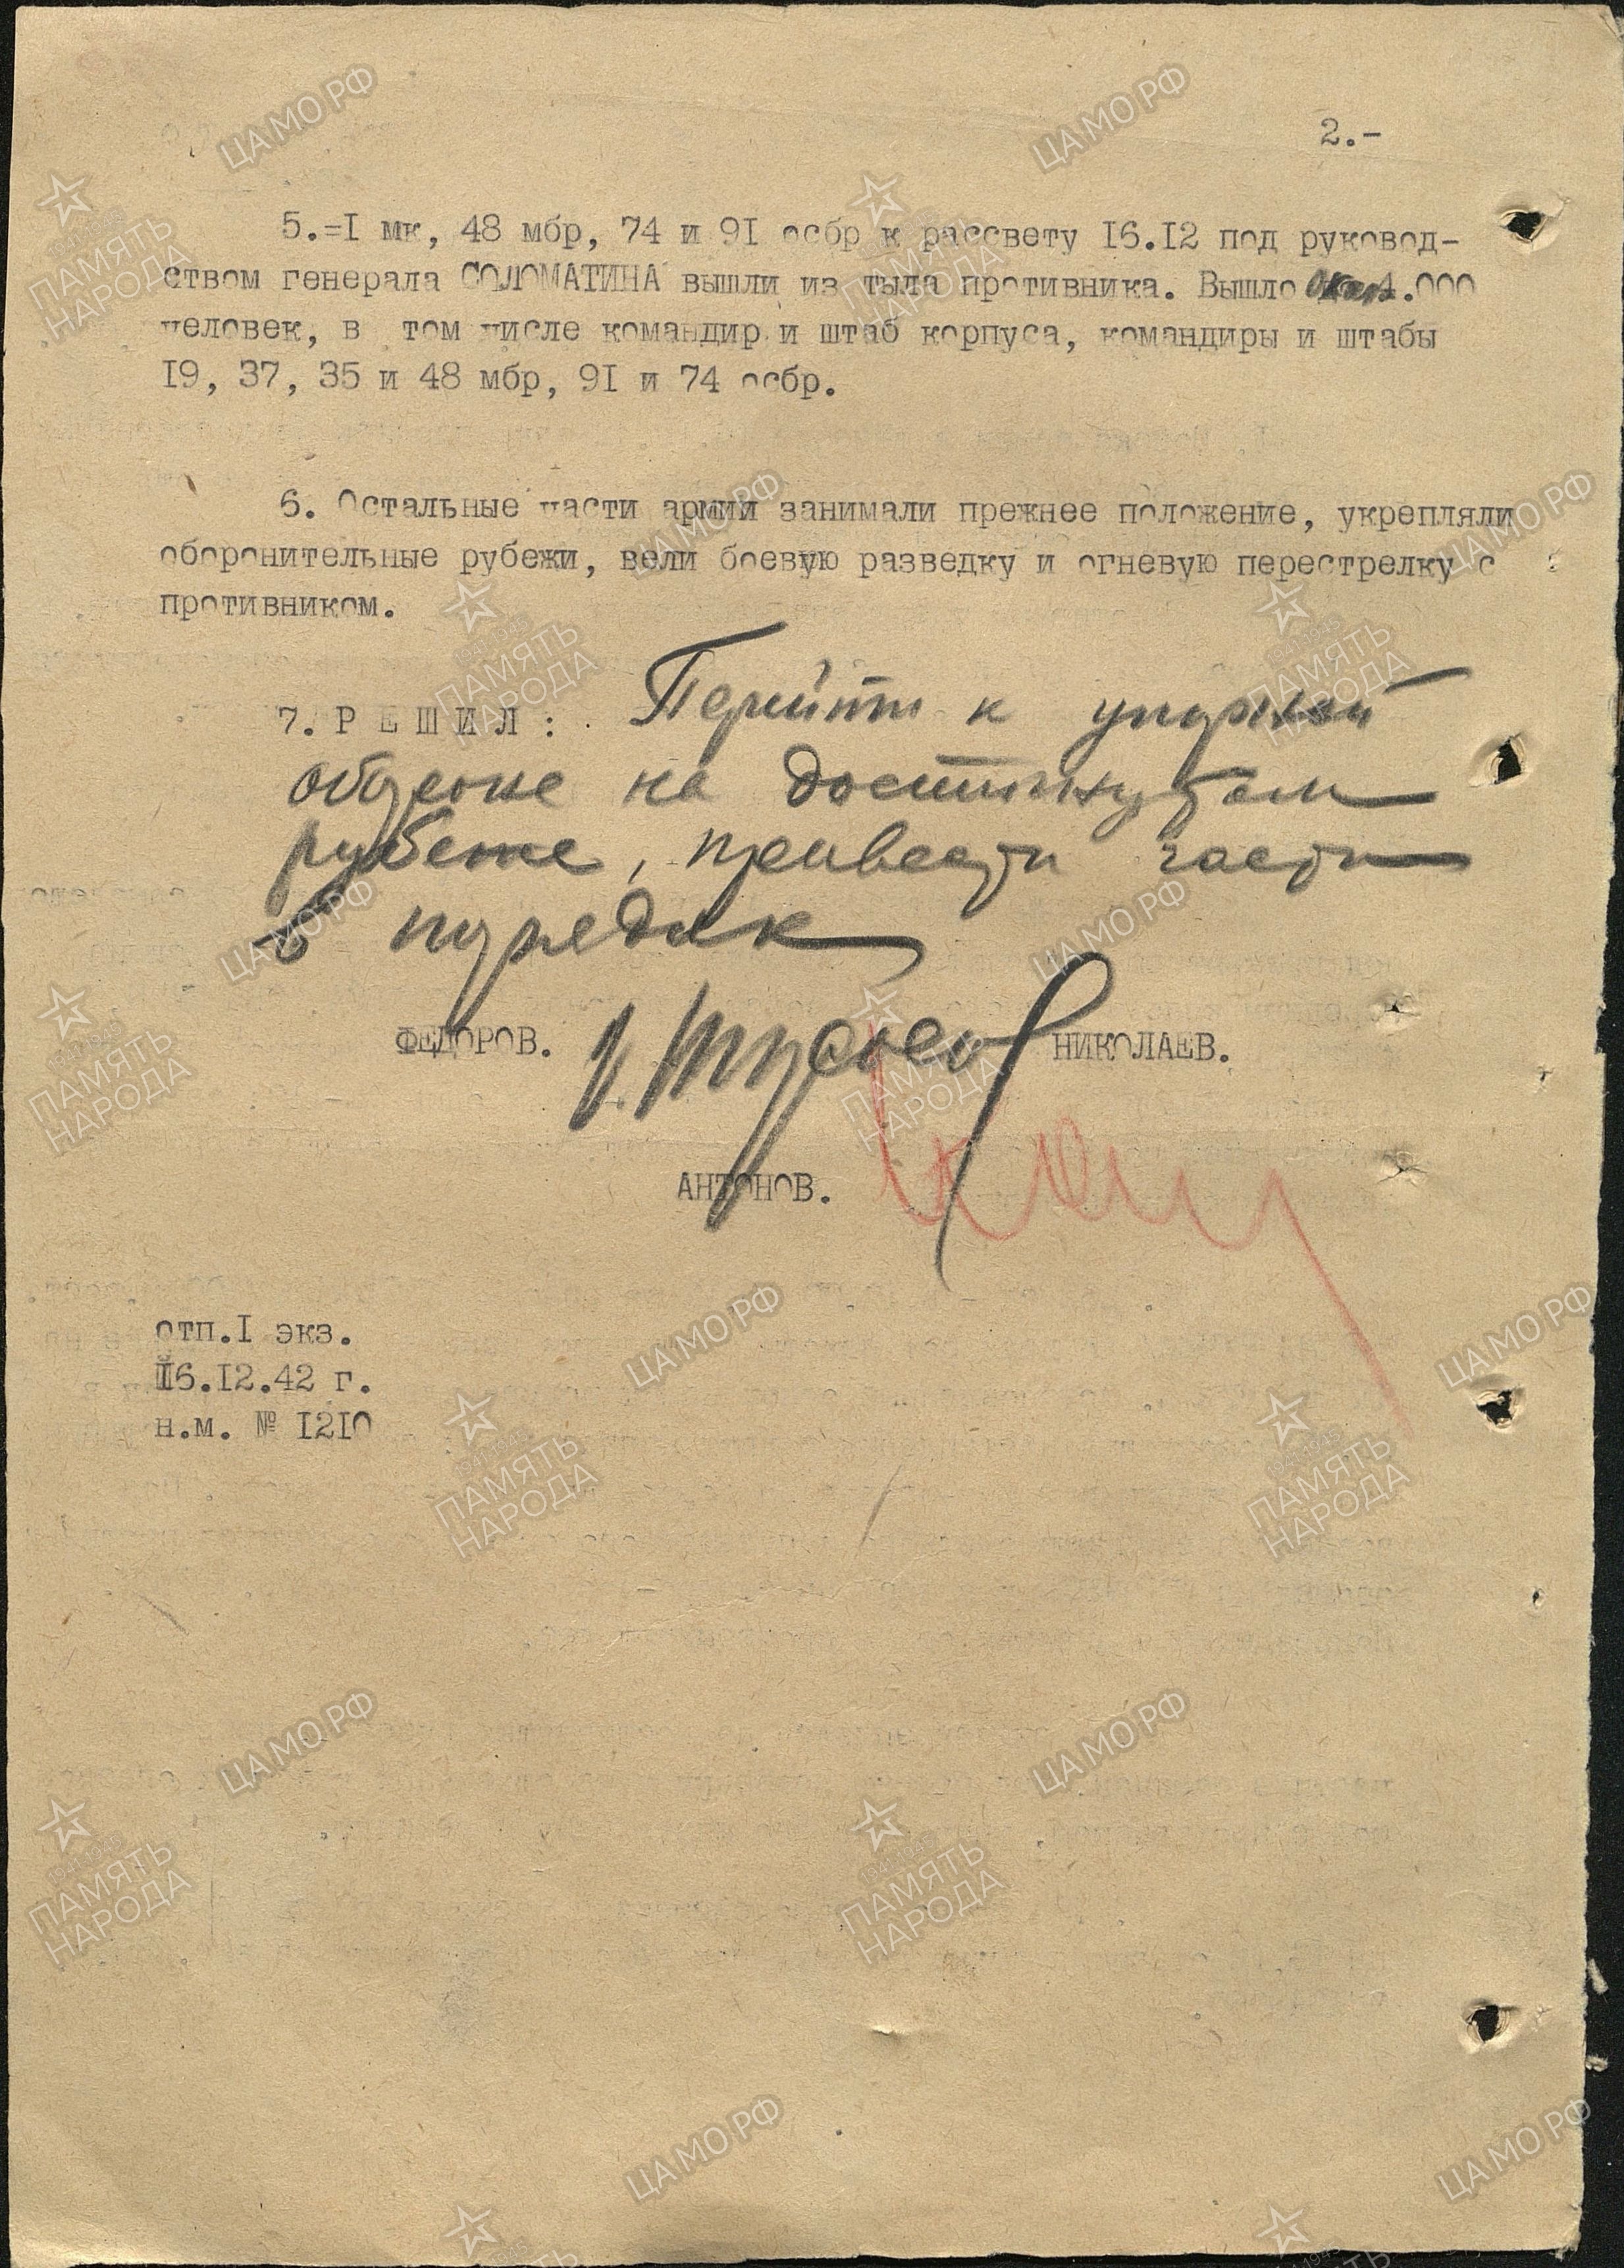 2.-
5.=I мк, 48 мбр, 74 и 91 осбр к рассвету 16.12 под руковод-
ством генерала СОЛОМАТИНА вышли из тыла противника. Вышло окол 4.000
человек, в том числе командир и штаб корпуса, командиры и штабы
19, 37, 35 и 48 мбр, 91 и 74 осбр.
6. Остальные части армии занимали прежнее положение, укрепляли
оборонительные рубежи, вели боевую разведку и огневую перестрелку с
противником.
7. Р Е Ш И Л : Перейти к упорной
обороне на достигнутом
рубеже, привести части
в порядок
ФЕДОРОВ. НИКОЛАЕВ.
АНТОНОВ.
отп.I экз.
16.12.42 г.
н.м. № 1210
ЦАМО РФ
1941-1945
ПАМЯТЬ
НАРОДА